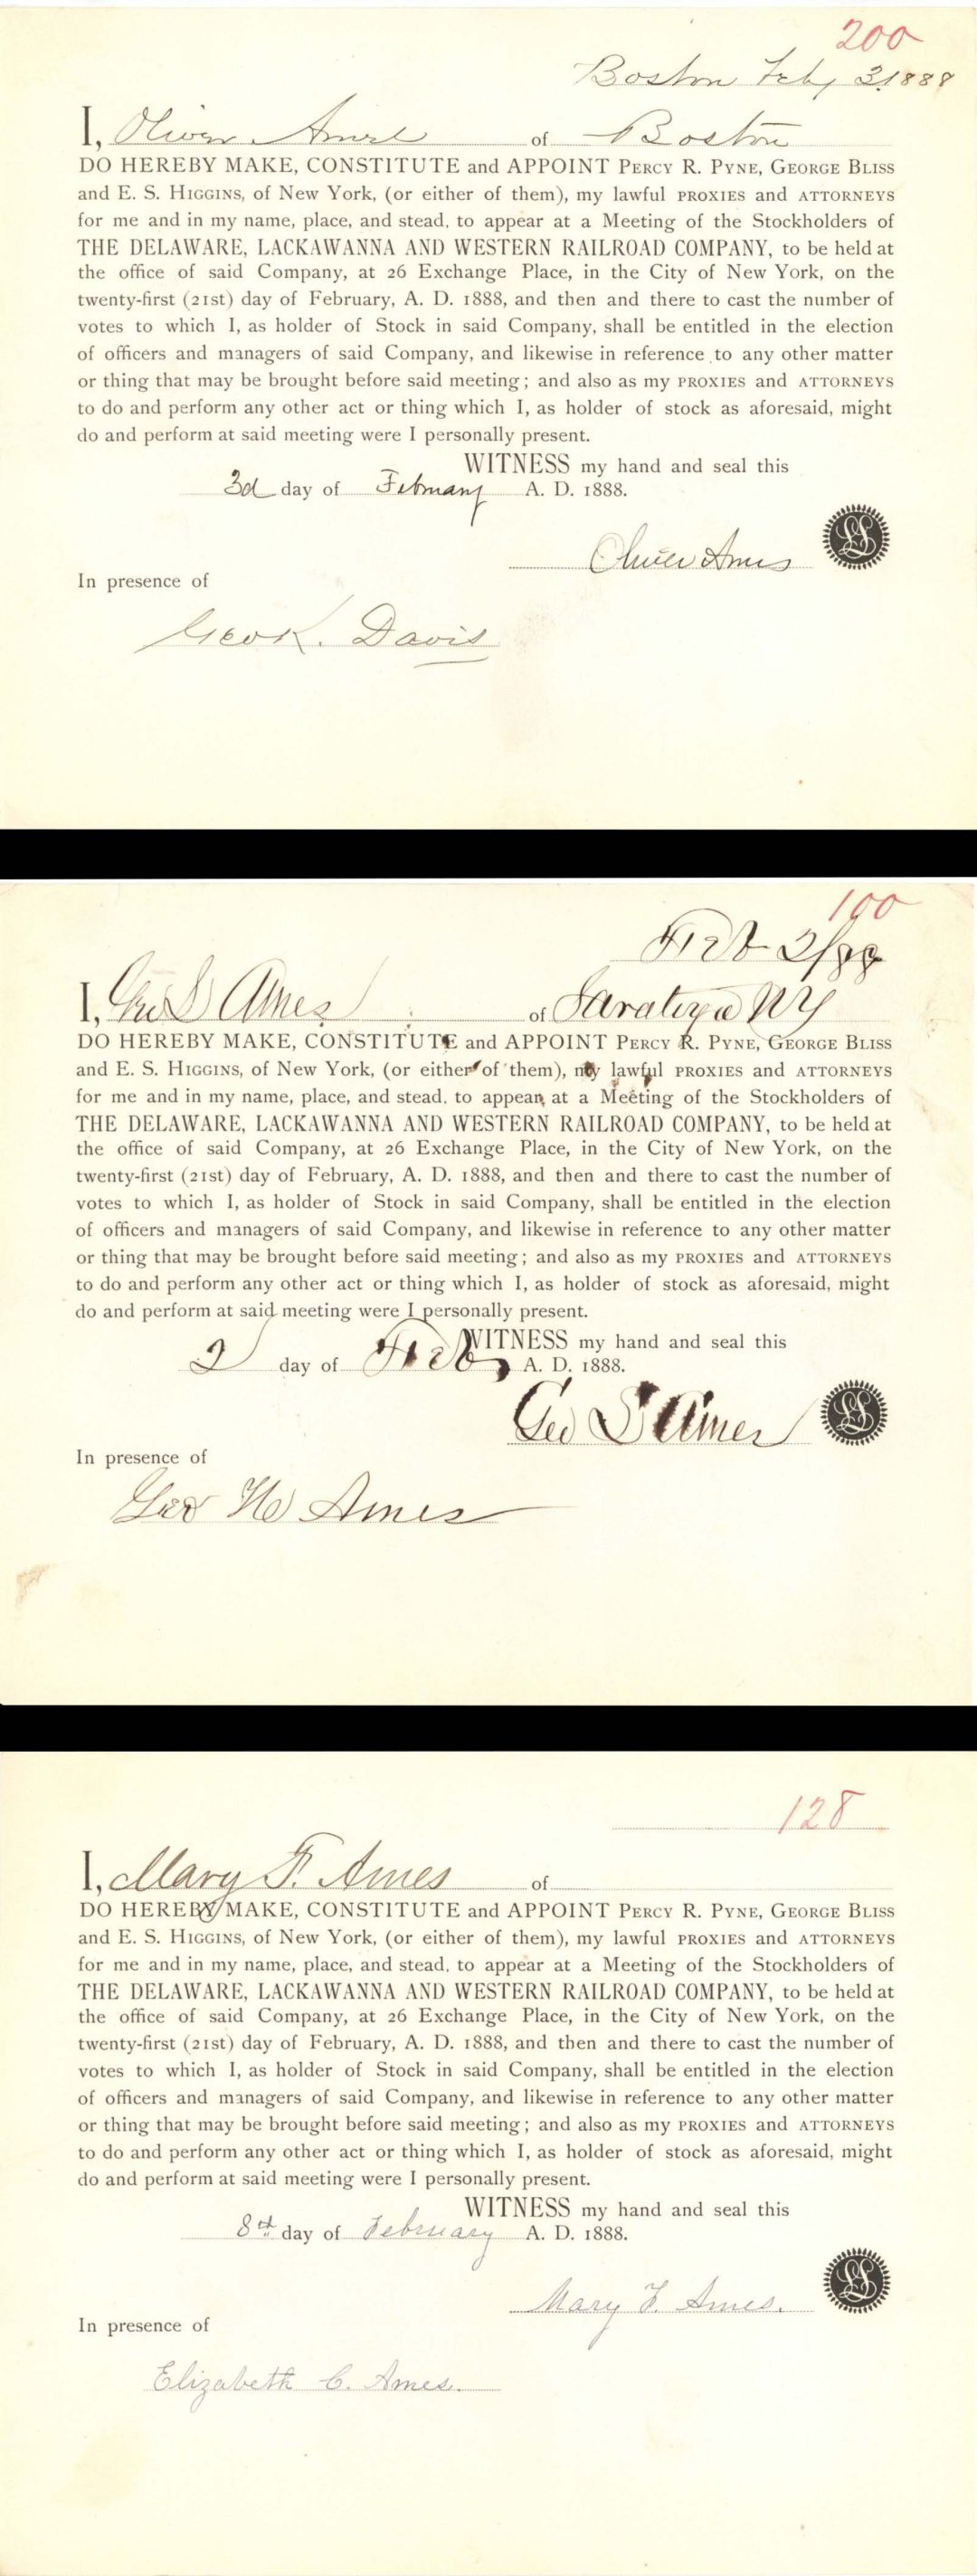 200
Boston Feby 3, 1888
I, Oliver Ames of Boston
DO HEREBY MAKE, CONSTITUTE and APPOINT PERCY R. PYNE, GEORGE BLISS
and E. S. HIGGINS, of New York, (or either of them), my lawful PROXIES and ATTORNEYS
for me and in my name, place, and stead, to appear at a Meeting of the Stockholders of
THE DELAWARE, LACKAWANNA AND WESTERN RAILROAD COMPANY, to be held at
the office of said Company, at 26 Exchange Place, in the City of New York, on the
twenty-first (21st) day of February, A. D. 1888, and then and there to cast the number of
votes to which I, as holder of Stock in said Company, shall be entitled in the election
of officers and managers of said Company, and likewise in reference to any other matter
or thing that may be brought before said meeting; and also as my PROXIES and ATTORNEYS
to do and perform any other act or thing which I, as holder of stock as aforesaid, might
do and perform at said meeting were I personally present.
WITNESS my hand and seal this
3d day of February A. D. 1888.
Oliver Ames
LS
In presence of
Geo K. Davis
100
Feb 2/88
I, Geo S Ames of Saratoga NY
DO HEREBY MAKE, CONSTITUTE and APPOINT PERCY R. PYNE, GEORGE BLISS
and E. S. HIGGINS, of New York, (or either of them), my lawful PROXIES and ATTORNEYS
for me and in my name, place, and stead, to appear at a Meeting of the Stockholders of
THE DELAWARE, LACKAWANNA AND WESTERN RAILROAD COMPANY, to be held at
the office of said Company, at 26 Exchange Place, in the City of New York, on the
twenty-first (21st) day of February, A. D. 1888, and then and there to cast the number of
votes to which I, as holder of Stock in said Company, shall be entitled in the election
of officers and managers of said Company, and likewise in reference to any other matter
or thing that may be brought before said meeting; and also as my PROXIES and ATTORNEYS
to do and perform any other act or thing which I, as holder of stock as aforesaid, might
do and perform at said meeting were I personally present.
WITNESS my hand and seal this
2 day of Feb A. D. 1888.
Geo S Ames
LS
In presence of
Geo H Ames
128
I, Mary F. Ames of
DO HEREBY MAKE, CONSTITUTE and APPOINT PERCY R. PYNE, GEORGE BLISS
and E. S. HIGGINS, of New York, (or either of them), my lawful PROXIES and ATTORNEYS
for me and in my name, place, and stead, to appear at a Meeting of the Stockholders of
THE DELAWARE, LACKAWANNA AND WESTERN RAILROAD COMPANY, to be held at
the office of said Company, at 26 Exchange Place, in the City of New York, on the
twenty-first (21st) day of February, A. D. 1888, and then and there to cast the number of
votes to which I, as holder of Stock in said Company, shall be entitled in the election
of officers and managers of said Company, and likewise in reference to any other matter
or thing that may be brought before said meeting; and also as my PROXIES and ATTORNEYS
to do and perform any other act or thing which I, as holder of stock as aforesaid, might
do and perform at said meeting were I personally present.
WITNESS my hand and seal this
8th day of February A. D. 1888.
Mary F. Ames.
LS
In presence of
Elizabeth C. Ames.